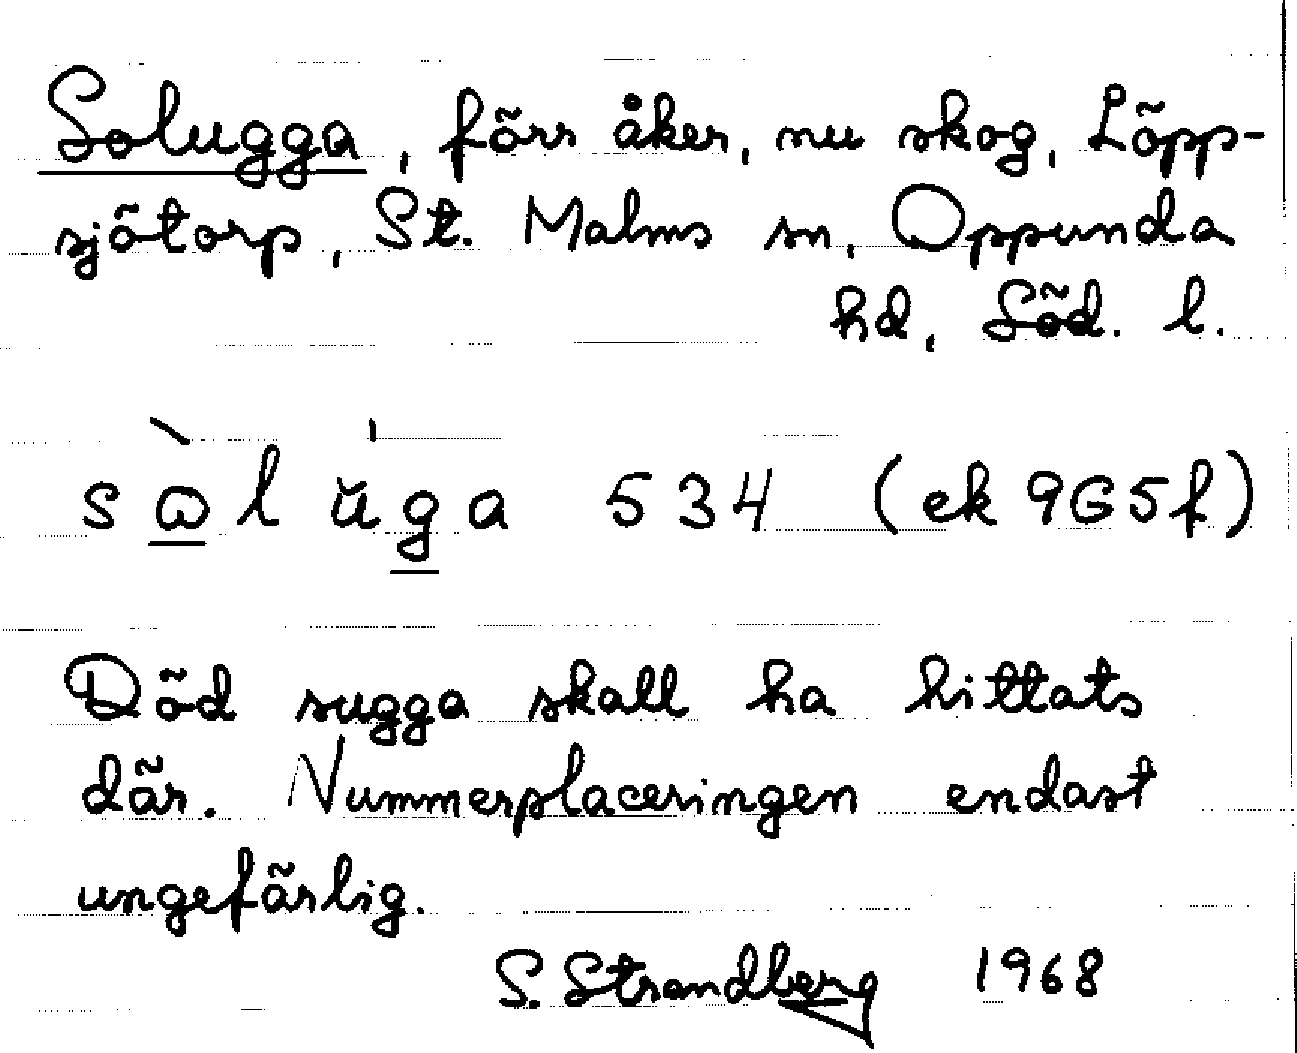 Solugga, förr åker, nu skog, Löpp-
sjötorp, St. Malms sn, Oppunda
hd, Söd. l.
sὼlŭga 534 (ek 9G5f)
Död sugga skall ha hittats
där. Nummerplaceringen endast
ungefärlig.
S. Strandberg 1968